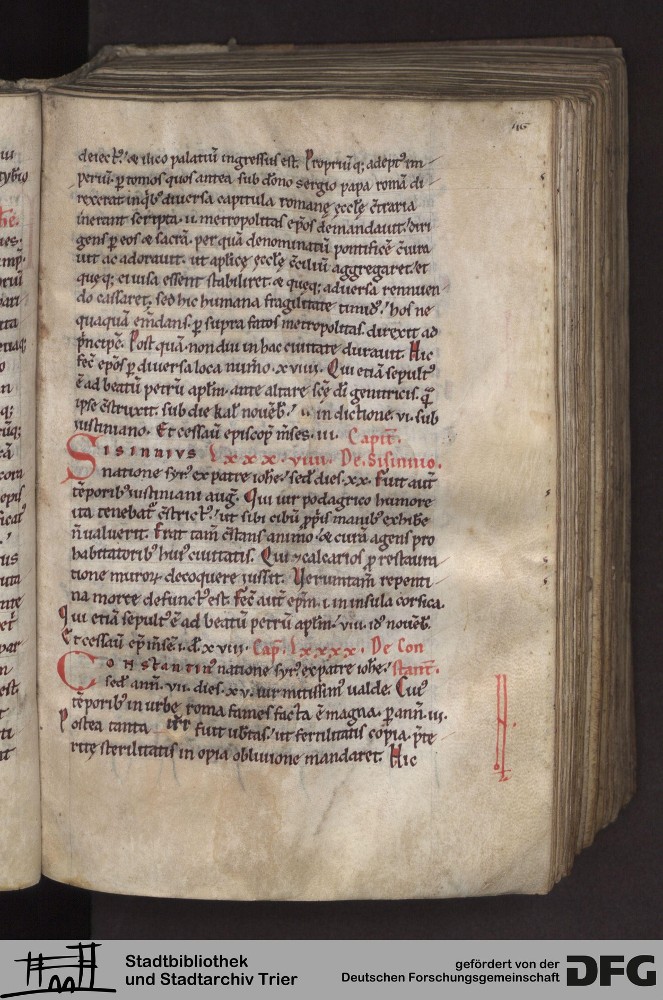 deiect᷒. & ilico palatiū ingressus est. Propriūq; adept᷒ im-
periū. ꝑ tomos quos antea sub dōno sergio papa romā di-
rexerat inq̇b᷒ diuersa capitula romanę ęcclę c̄traria
inerant scripta. ii. metropolitas ep̄os demandauit. diri
gens ꝑ eos & sacrā. per quā denominatū pontificē c̄iura
uit ac adorauit. ut aplicę ęcclę c̄ciliū aggregaret. et
quęq; ei uisa essent stabiliret. & quęq; aduersa rennuen-
do cassaret. sed hic humana fragilitate timid᷒. hos ne
quaquā em̄dans. ꝑ supra fatos metropolitas direxit ad
p̄ncipē. Post quā non diu in hac ciuitate durauit. Hic
fec̄ ep̄os ꝑ diuersa loca num̄o. xviiii. Qui etiā sepult᷒
ē ad beatū petrū apl̄m. ante altare scę dī genitricis. q̄
ipse c̄struxit. sub die kal̄ nouēb̄. in dictione. vi. sub
iustiniano. Et cessau̅ episcop̄ m̄ses. iii. Capit̄.
Sisinnius Lxxx. viiii. De Sisinnio.
natione syr᷒ ex patre ioh̄e. sed̄ dies. xx. Fuit aut̄
tēporib᷒ iustiniani auḡ. Qui uir podagrico humore
ita tenebat᷒ c̄strict᷒. ut sibi cibū ꝓp̄is manib᷒ exhibe
n̄ ualuerit. Erat tam̄ c̄stans animo. & curā agens pro
habitatorib᷒ hui᷒ ciuitatis. Qui & calcarios ꝓ restaura
tione muroꝝ decoquere iussit. Ueruntam̄ repenti-
na morte defunct᷒ est. Fec̄ aut̄ ep̄m. i. in insula corsica.
Qui etiā sepult᷒ ē ad beatū petrū apl̄m. viii. id᷒ nouēb̄.
Et cessau̅ ep̄ m̄sē. i. d̄. xviii. Cap̄. Lxxxx. De Con
Constantin᷒ natione syr᷒ ex patre ioh̄e. stant̄.
sed̄ ann̄. vii. dies. xv. uir mitissim᷒ ualde. Cui᷒
tēporib᷒ in urbe roma fames facta ē magna. ꝑ ann̄. iii.
Postea tanta fuit ub̄tas. ut fertilitatis copia. p̄te
ritę sterilitatis in opia obliuione mandaret. Hic
Stadtbibliothek
und Stadtarchiv Trier
gefördert von der
Deutschen Forschungsgemeinschaft
DFG